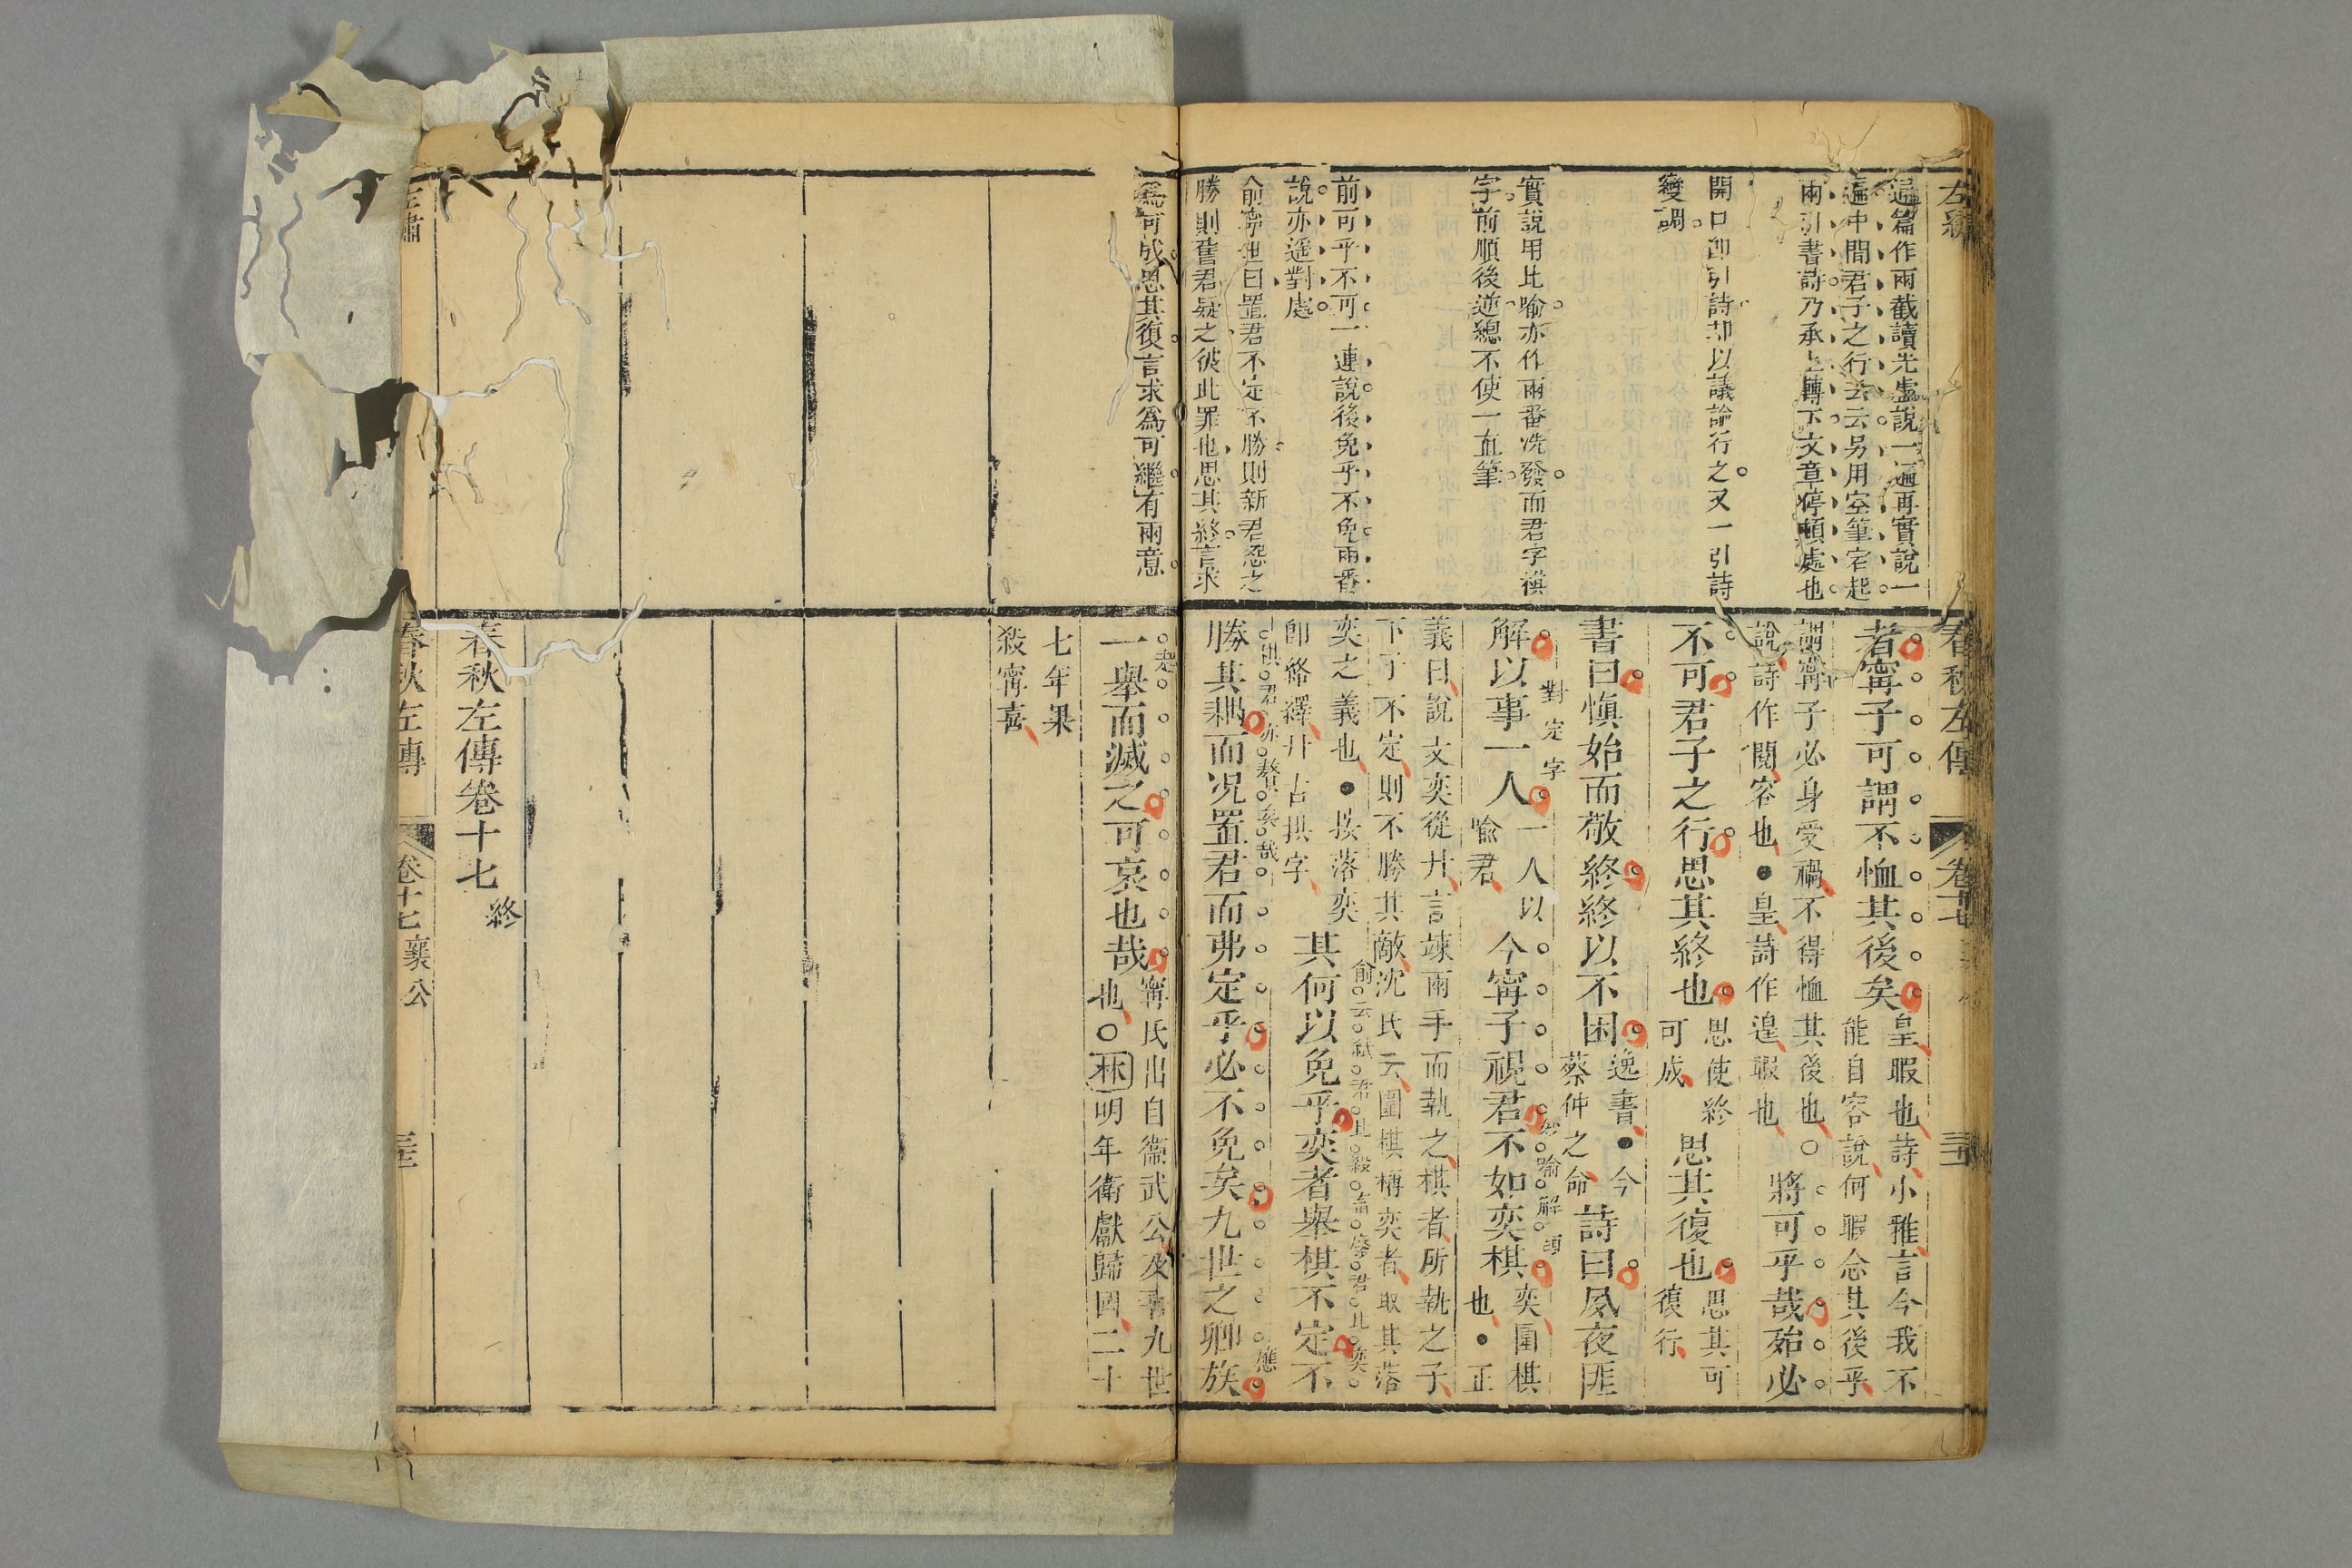 左繡
通篇作兩截讀先虛說一遍再實說一
遍中間君子之行去云另用空筆宕起
兩引書詩乃承上轉下文章停頓處也
開口卽引詩却以議論行之又一引詩
變調
實說用比喻亦作兩番洗發而君字襯
字前順後逆總不使一直筆
前可乎不可一連說後免乎不免兩番
說亦遙對處
俞寧世曰置君不定不勝則新君怨之
勝則舊君疑之彼此罪也思其終言求
春秋左傳
卷十七
三十二
者甯子可謂不恤其後矣
皇暇也詩小雅言今我不
能自容說何暇念其後乎
謂甯子必身受禍不得恤其後也○
說詩作閱容也●皇詩作遑暇也
將可乎哉殆必
不可君子之行思其終也
思使終
可成
思其復也
思其可
復行
書曰愼始而敬終終以不困
逸書●今
蔡仲之命
詩曰夙夜匪
解以事一人
對定字
一人以
喻君
今甯子視君不如奕棋
妙喻解頤
奕圍棋
也●正
義曰說文奕從廾言竦兩手而執之棋者所執之子
下子不定則不勝其敵沈氏云圍棋稱奕者取其落
奕之義也●按落奕
卽絡繹廾古拱字
其何以免乎奕者舉棋不定不
俞云弒君且殺畜廢君比奕
勝其耦而况置君而弗定乎必不免矣九世之卿族
棋君亦贅矣哉
應
爲可成思其復言求爲可繼有兩意
一舉而滅之可哀也哉
甯氏出自衞武公及喜九世
也○林明年衛獻歸國二十
七年果
殺甯喜
春秋左傳卷十七
終
左繡
春秋左傳
卷十七
襄公